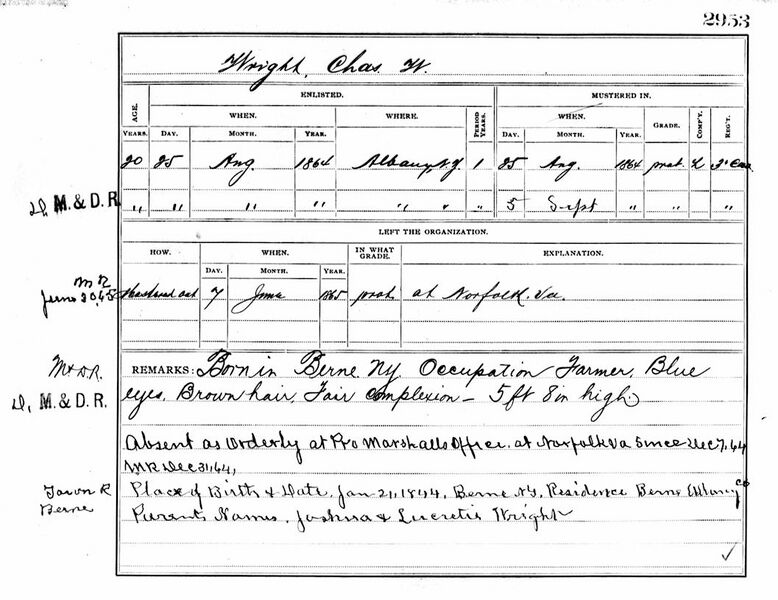 2953
Wright, Chas. W.
ENLISTED. MUSTERED IN.
AGE. WHEN. WHERE. PERIOD YEARS. WHEN. GRADE. COMP'Y. REG'T.
YEARS. DAY. MONTH. YEAR. DAY. MONTH. YEAR.
20 25 Aug. 1864 Albany, N.Y. 1 25 Aug. 1864 priv. K 3" Cav
D, M. & D. R. " " " " " " " 5 Sept " " " "
LEFT THE ORGANIZATION.
HOW. WHEN. IN WHAT GRADE. EXPLANATION.
DAY. MONTH. YEAR.
M R
June 30,65 Mustered out 7 June 1865 priv. at Norfolk. Va.
M & D.R. REMARKS: Born in Berne Ny Occupation Farmer, Blue
D, M. & D. R. eyes, Brown hair, Fair Complexion – 5 ft 8 in high.
Absent as Orderly at Pro Marshalls Office. at Norfolk Va Since Dec 7, 64
MR Dec 31, 64,
Town R Place of Birth & Date. Jan 21, 1844, Berne NY, Residence Berne Albany Co
Berne Parents Names. Joshua & Lucretia Wright